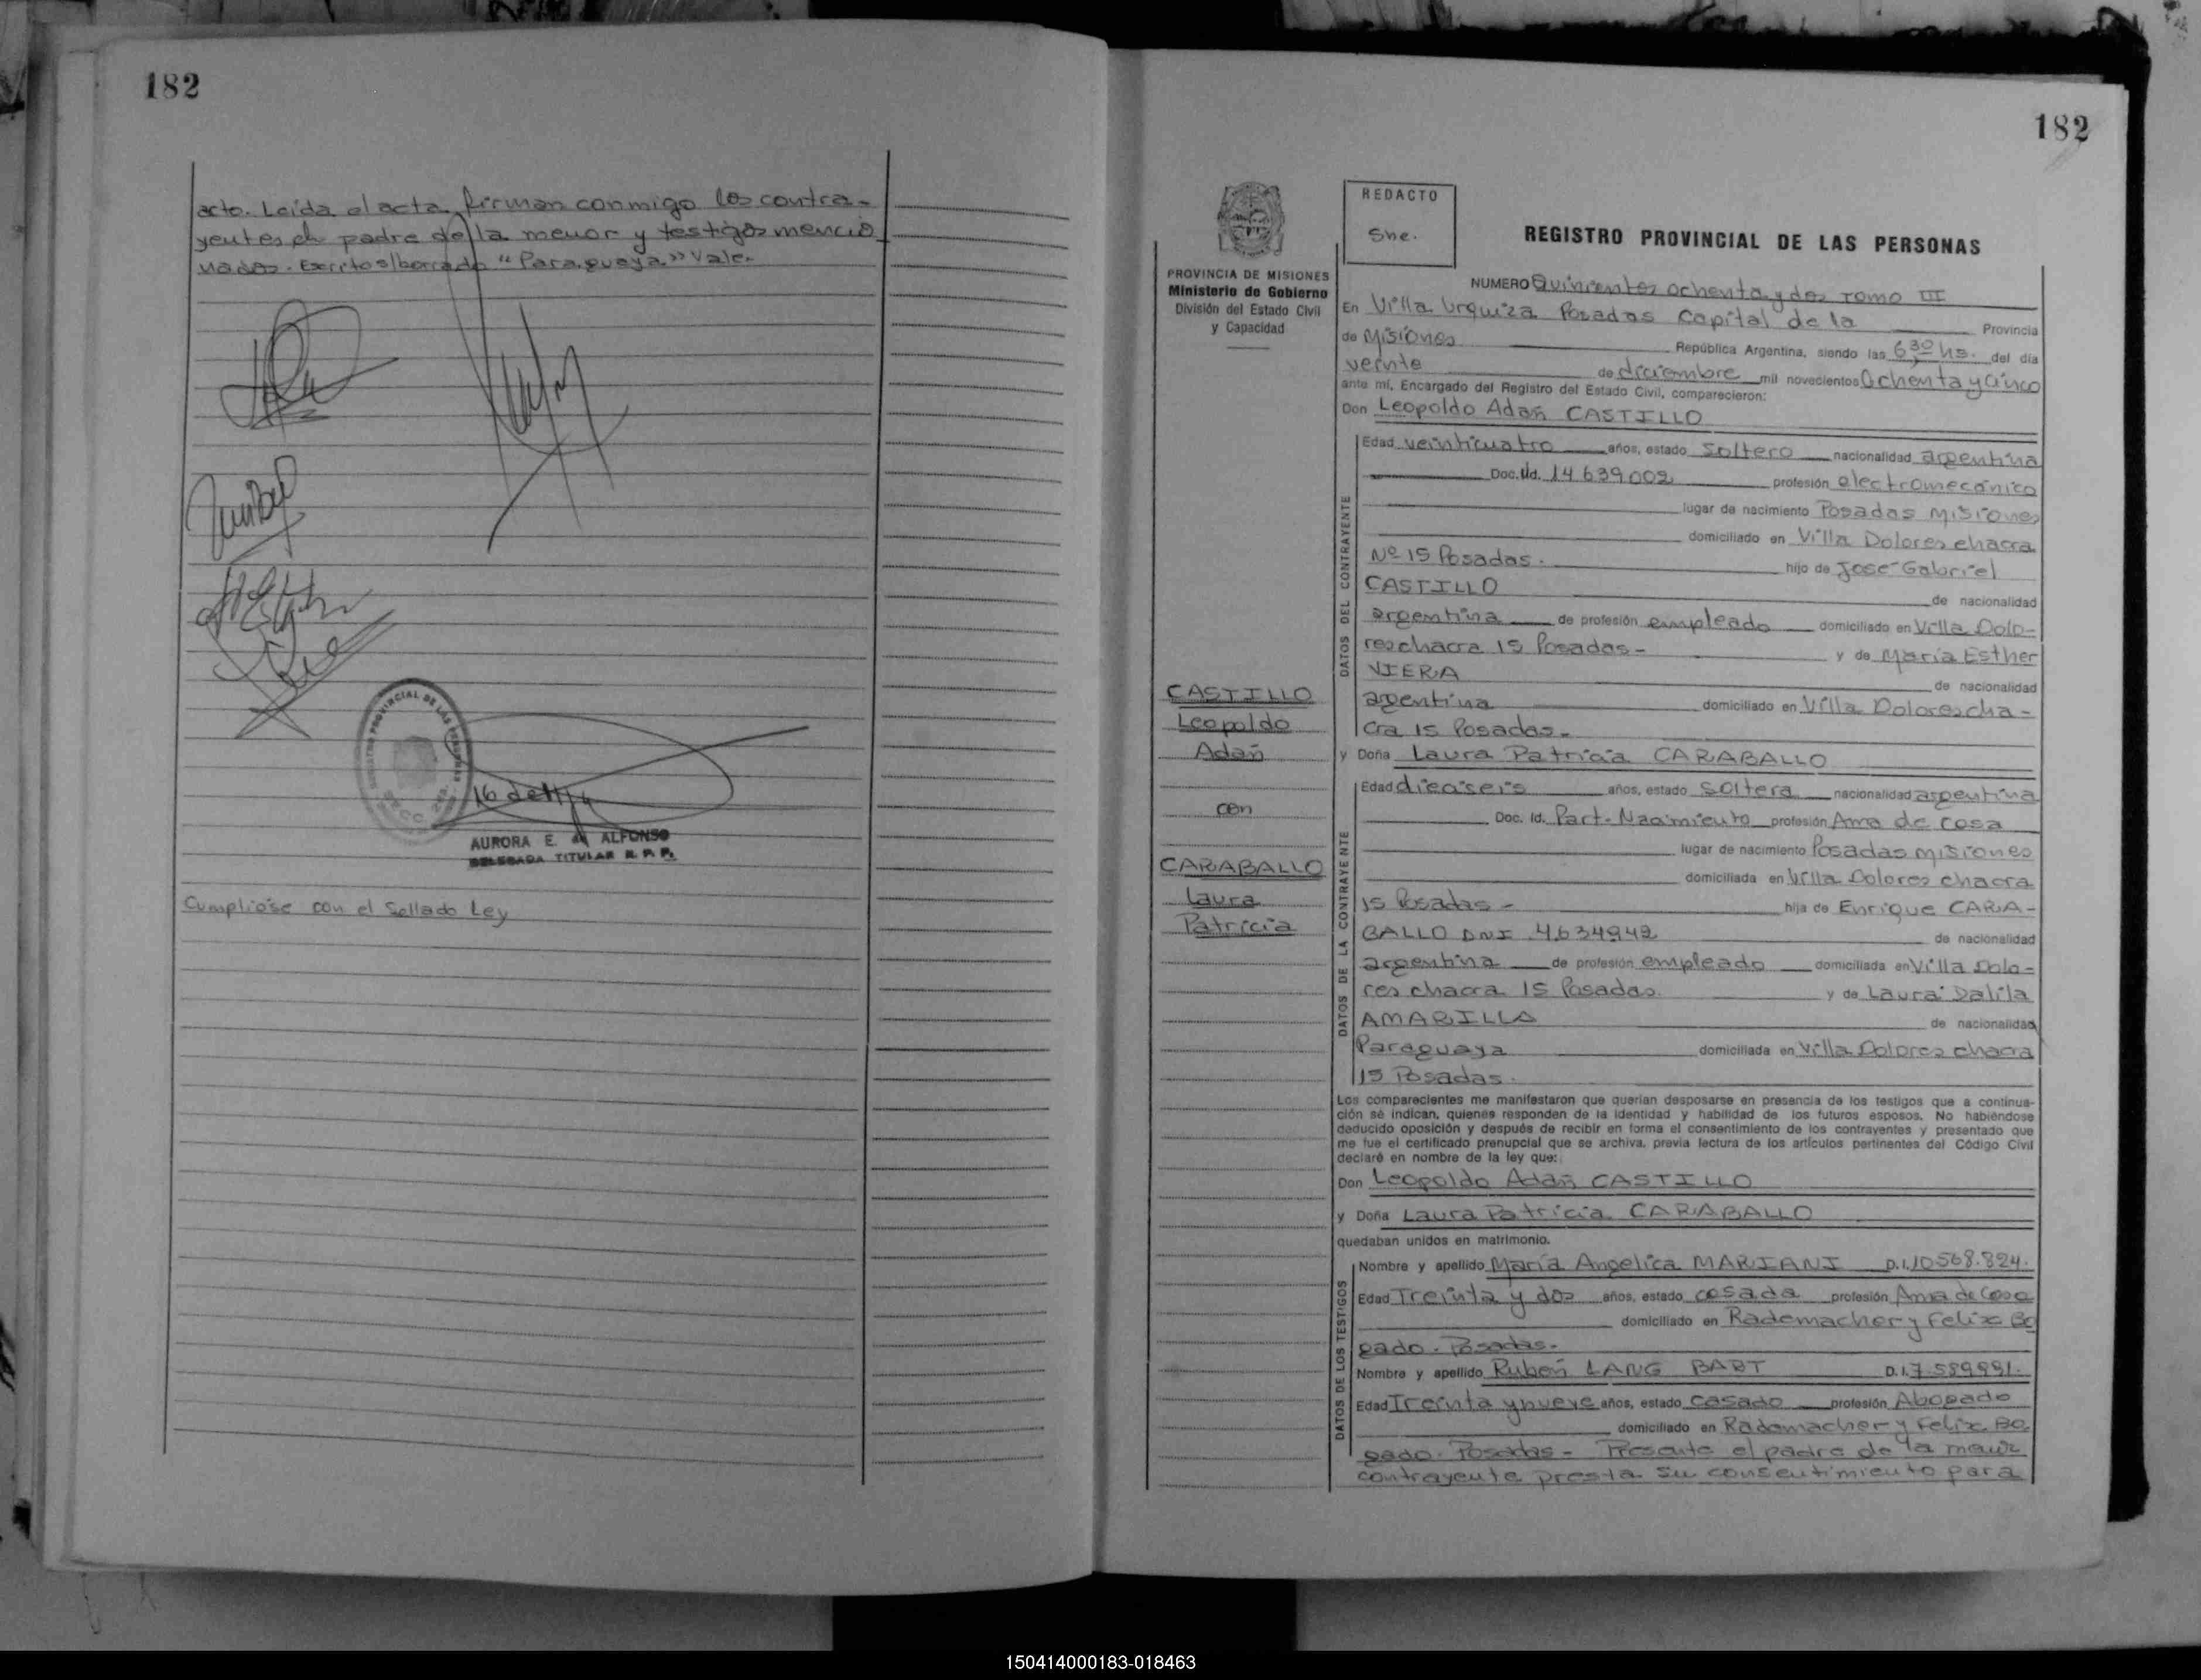 182
acto. Leida el acta firman conmigo los contra-
yentes el padre de la menor y testigos mencio
nados. Escrito s/borrado "Paraguaya" Vale.
AURORA E. de ALFONSO
DELEGADA TITULAR R. P. P.
Cumpliose con el Sellado Ley
182
PROVINCIA DE MISIONES
Ministerio de Gobierno
División del Estado Civil
y Capacidad
REDACTO
She.
REGISTRO PROVINCIAL DE LAS PERSONAS
NUMERO Quinientos ochenta y dos Tomo III
En Villa Urquiza Posadas Capital de la Provincia
de Misiones República Argentina, siendo las 6,30 hs. del día
veinte de diciembre mil novecientos Ochenta y cinco
ante mí, Encargado del Registro del Estado Civil, comparecieron:
Don Leopoldo Adán CASTILLO
DATOS DEL CONTRAYENTE
Edad veinticuatro años, estado Soltero nacionalidad argentina
Doc. Id. 14 639 002 profesión electromecánico
lugar de nacimiento Posadas Misiones
domiciliado en Villa Dolores chacra
Nº 15 Posadas. hijo de José Gabriel
CASTILLO de nacionalidad
argentina de profesión empleado domiciliado en Villa Dolo-
res chacra 15 Posadas- y de María Esther
VIERA de nacionalidad
argentina domiciliado en Villa Dolores cha-
cra 15 Posadas-
y Doña Laura Patricia CARABALLO
CASTILLO
Leopoldo
Adán
con
CARABALLO
Laura
Patricia
DATOS DE LA CONTRAYENTE
Edad dieciseis años, estado Soltera nacionalidad argentina
Doc. Id. Part. Nacimiento profesión Ama de casa
lugar de nacimiento Posadas Misiones
domiciliada en Villa Dolores chacra
15 Posadas - hija de Enrique CARA-
BALLO DNI 4634942 de nacionalidad
argentina de profesión empleado domiciliada en Villa Dolo-
res chacra 15 Posadas. y de Laura Dalila
AMARILLA de nacionalidad
Paraguaya domiciliada en Villa Dolores chacra
15 Posadas.
Los comparecientes me manifestaron que querían desposarse en presencia de los testigos que a continua-
ción se indican, quienes responden de la identidad y habilidad de los futuros esposos. No habiéndose
deducido oposición y después de recibir en forma el consentimiento de los contrayentes y presentado que
me fue el certificado prenupcial que se archiva, previa lectura de los artículos pertinentes del Código Civil
declaré en nombre de la ley que:
Don Leopoldo Adán CASTILLO
y Doña Laura Patricia CARABALLO
quedaban unidos en matrimonio.
DATOS DE LOS TESTIGOS
Nombre y apellido María Angelica MARIANI D.I. 10.568.824.
Edad Treinta y dos años, estado casada profesión Ama de Casa
domiciliado en Rademacher y Felix Bo
gado. Posadas-
Nombre y apellido Rubén LANG BART D.I. 7 589991.
Edad Treinta y nueve años, estado casado profesión Abogado
domiciliado en Rademacher y Felix Bo
gado. Posadas - Presente el padre de la menor
contrayente presta su consentimiento para
150414000183-018463